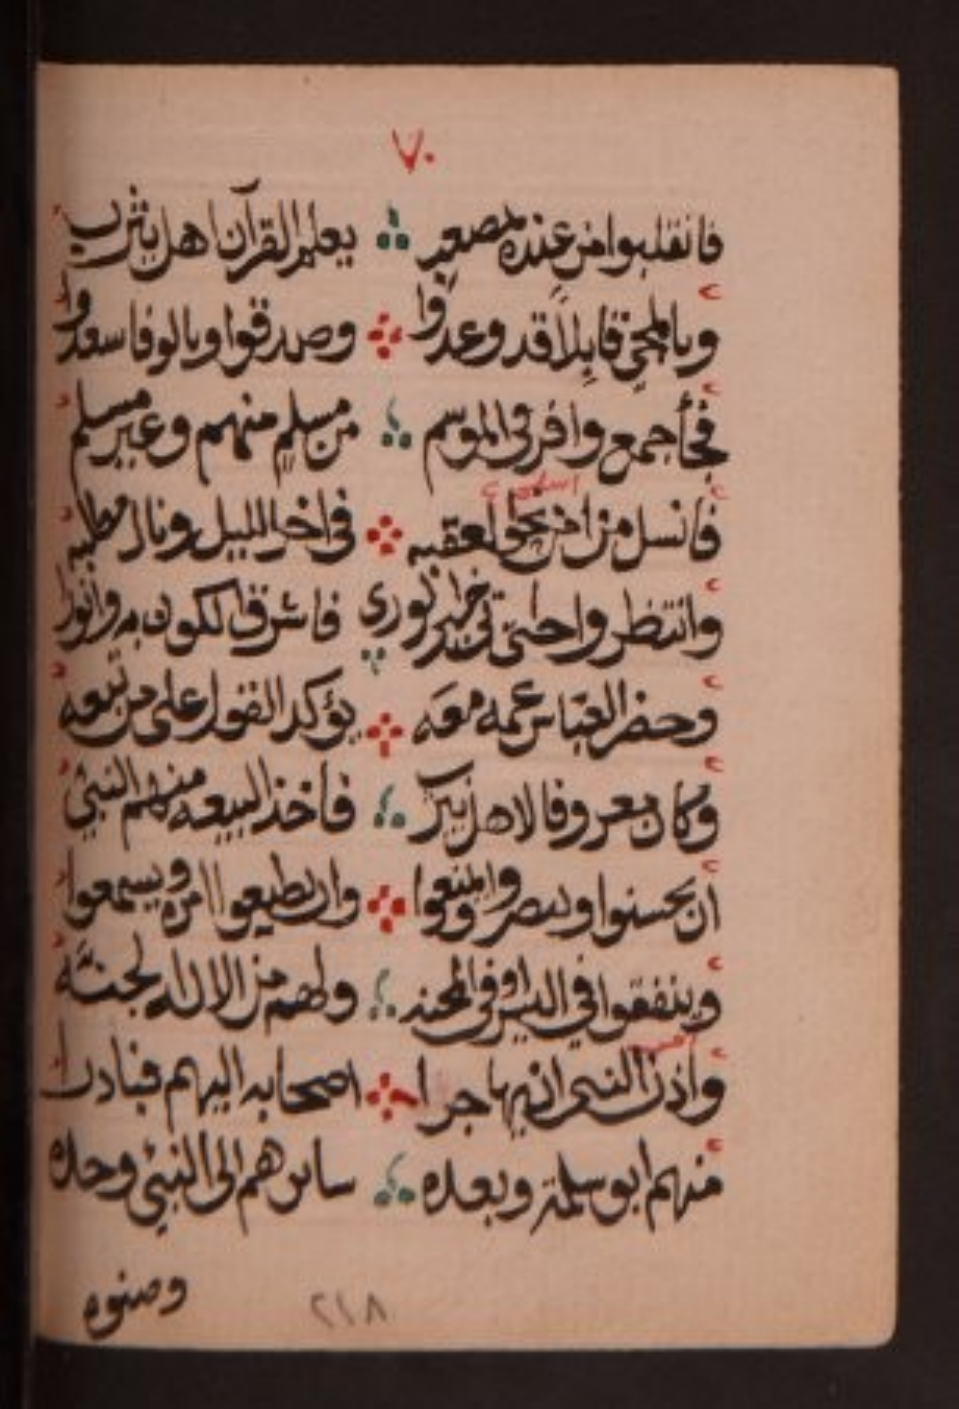 ٧٠
فانقلبوا من عنده بمصعب يعلم القرآن اهل يثرب
وبالمجئ قابلا قد وعدوا وصدقوا وبالوفا سعدوا
فجأ جمع وافر في الموسم من مسلم منهم وغير مسلم
اسلامى
فانسل من نحو العقبه في اخر الليل ونال مطلبه
وانتظروا حتى خير الورى فاشرق الكون به وانورا
وحضر العباس عمه معه يؤكد القول على من تبعه
وكان معروفا لاهل يثرب فاخذ البيعه منهم النبي
ان يحسنوا وينصروا ويمنعوا وان يطيعوا امره ويسمعوا
وينفقوا في اليسر وفي المحنه ولهم من الاله الجنه
واذن النبي ان يهاجرا اصحابه اليهم فبادرا
منهم ابو سلمة وبعده سايرهم الى النبي وحده
وصنوه
٢١٨